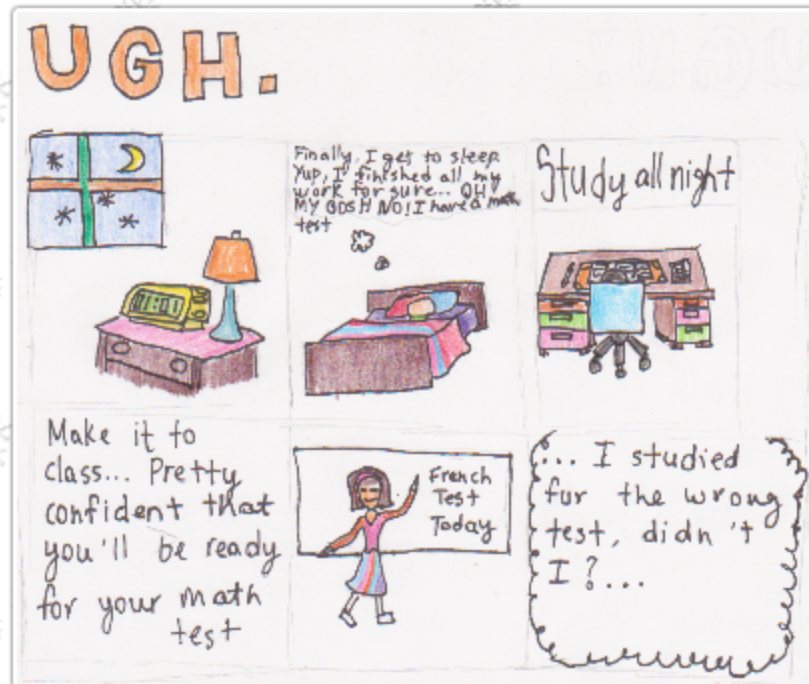 UGH.
Finally, I get to sleep.
Yup, I finished all my
work for sure... OH
MY GOSH NO! I have a math
test
Study all night
Make it to
class... Pretty
confident that
you'll be ready
for your math
test
French
Test
Today
... I studied
fur the wrong
test, didn't
I?...